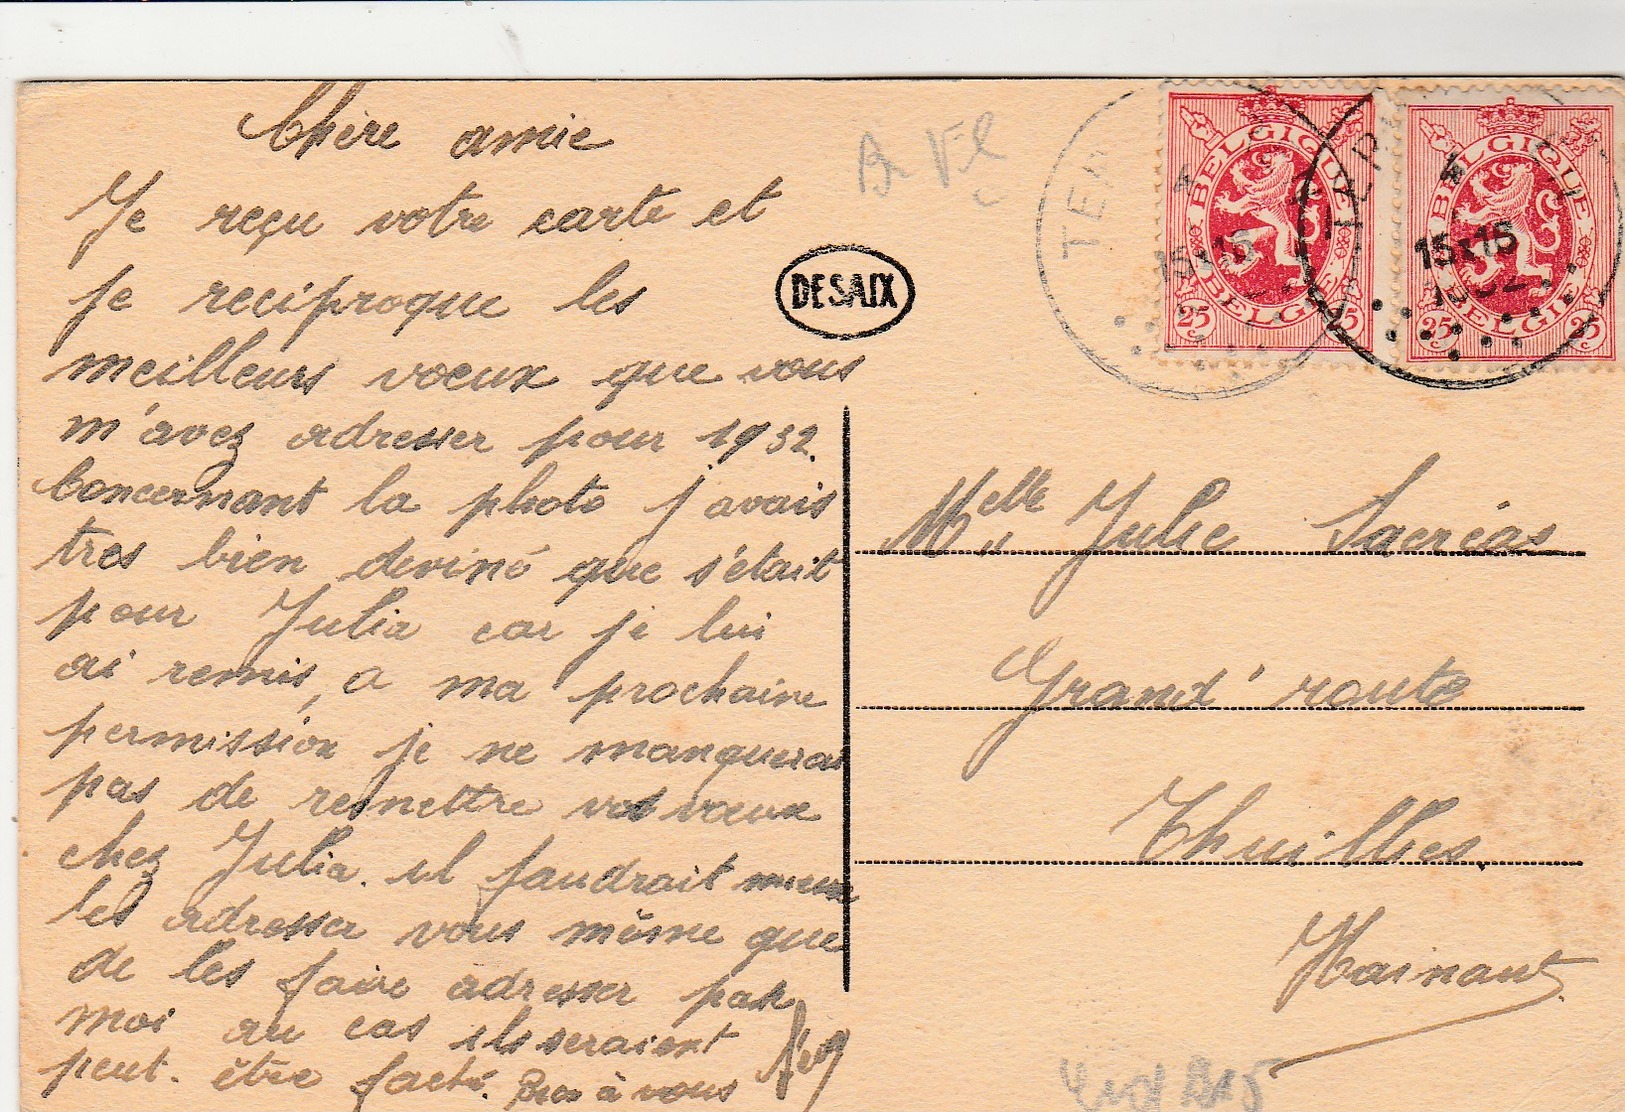 Chère amie
Je reçu votre carte et
je reciproque les
meilleurs voeux que vous
m'avez adresser pour 1932.
Concernant la photo j'avais
tres bien deviné que s'était
pour Julia car je lui
ai remis, a ma prochaine
permission je ne manquerai
pas de remettre vos voeux
chez Julia. il faudrait mieux
les adresser vous même que
de les faire adresser par
moi au cas ils seraient
peut-être faché. Bien à vous
DESAIX
BELGIQUE
BELGIE
25 25
4
15 x 15
BELGIQUE
BELGIE
35 35
4
15 x 15
1932
Melle Julie Sacréas
Grand' route
Thuillies.
Hainaut